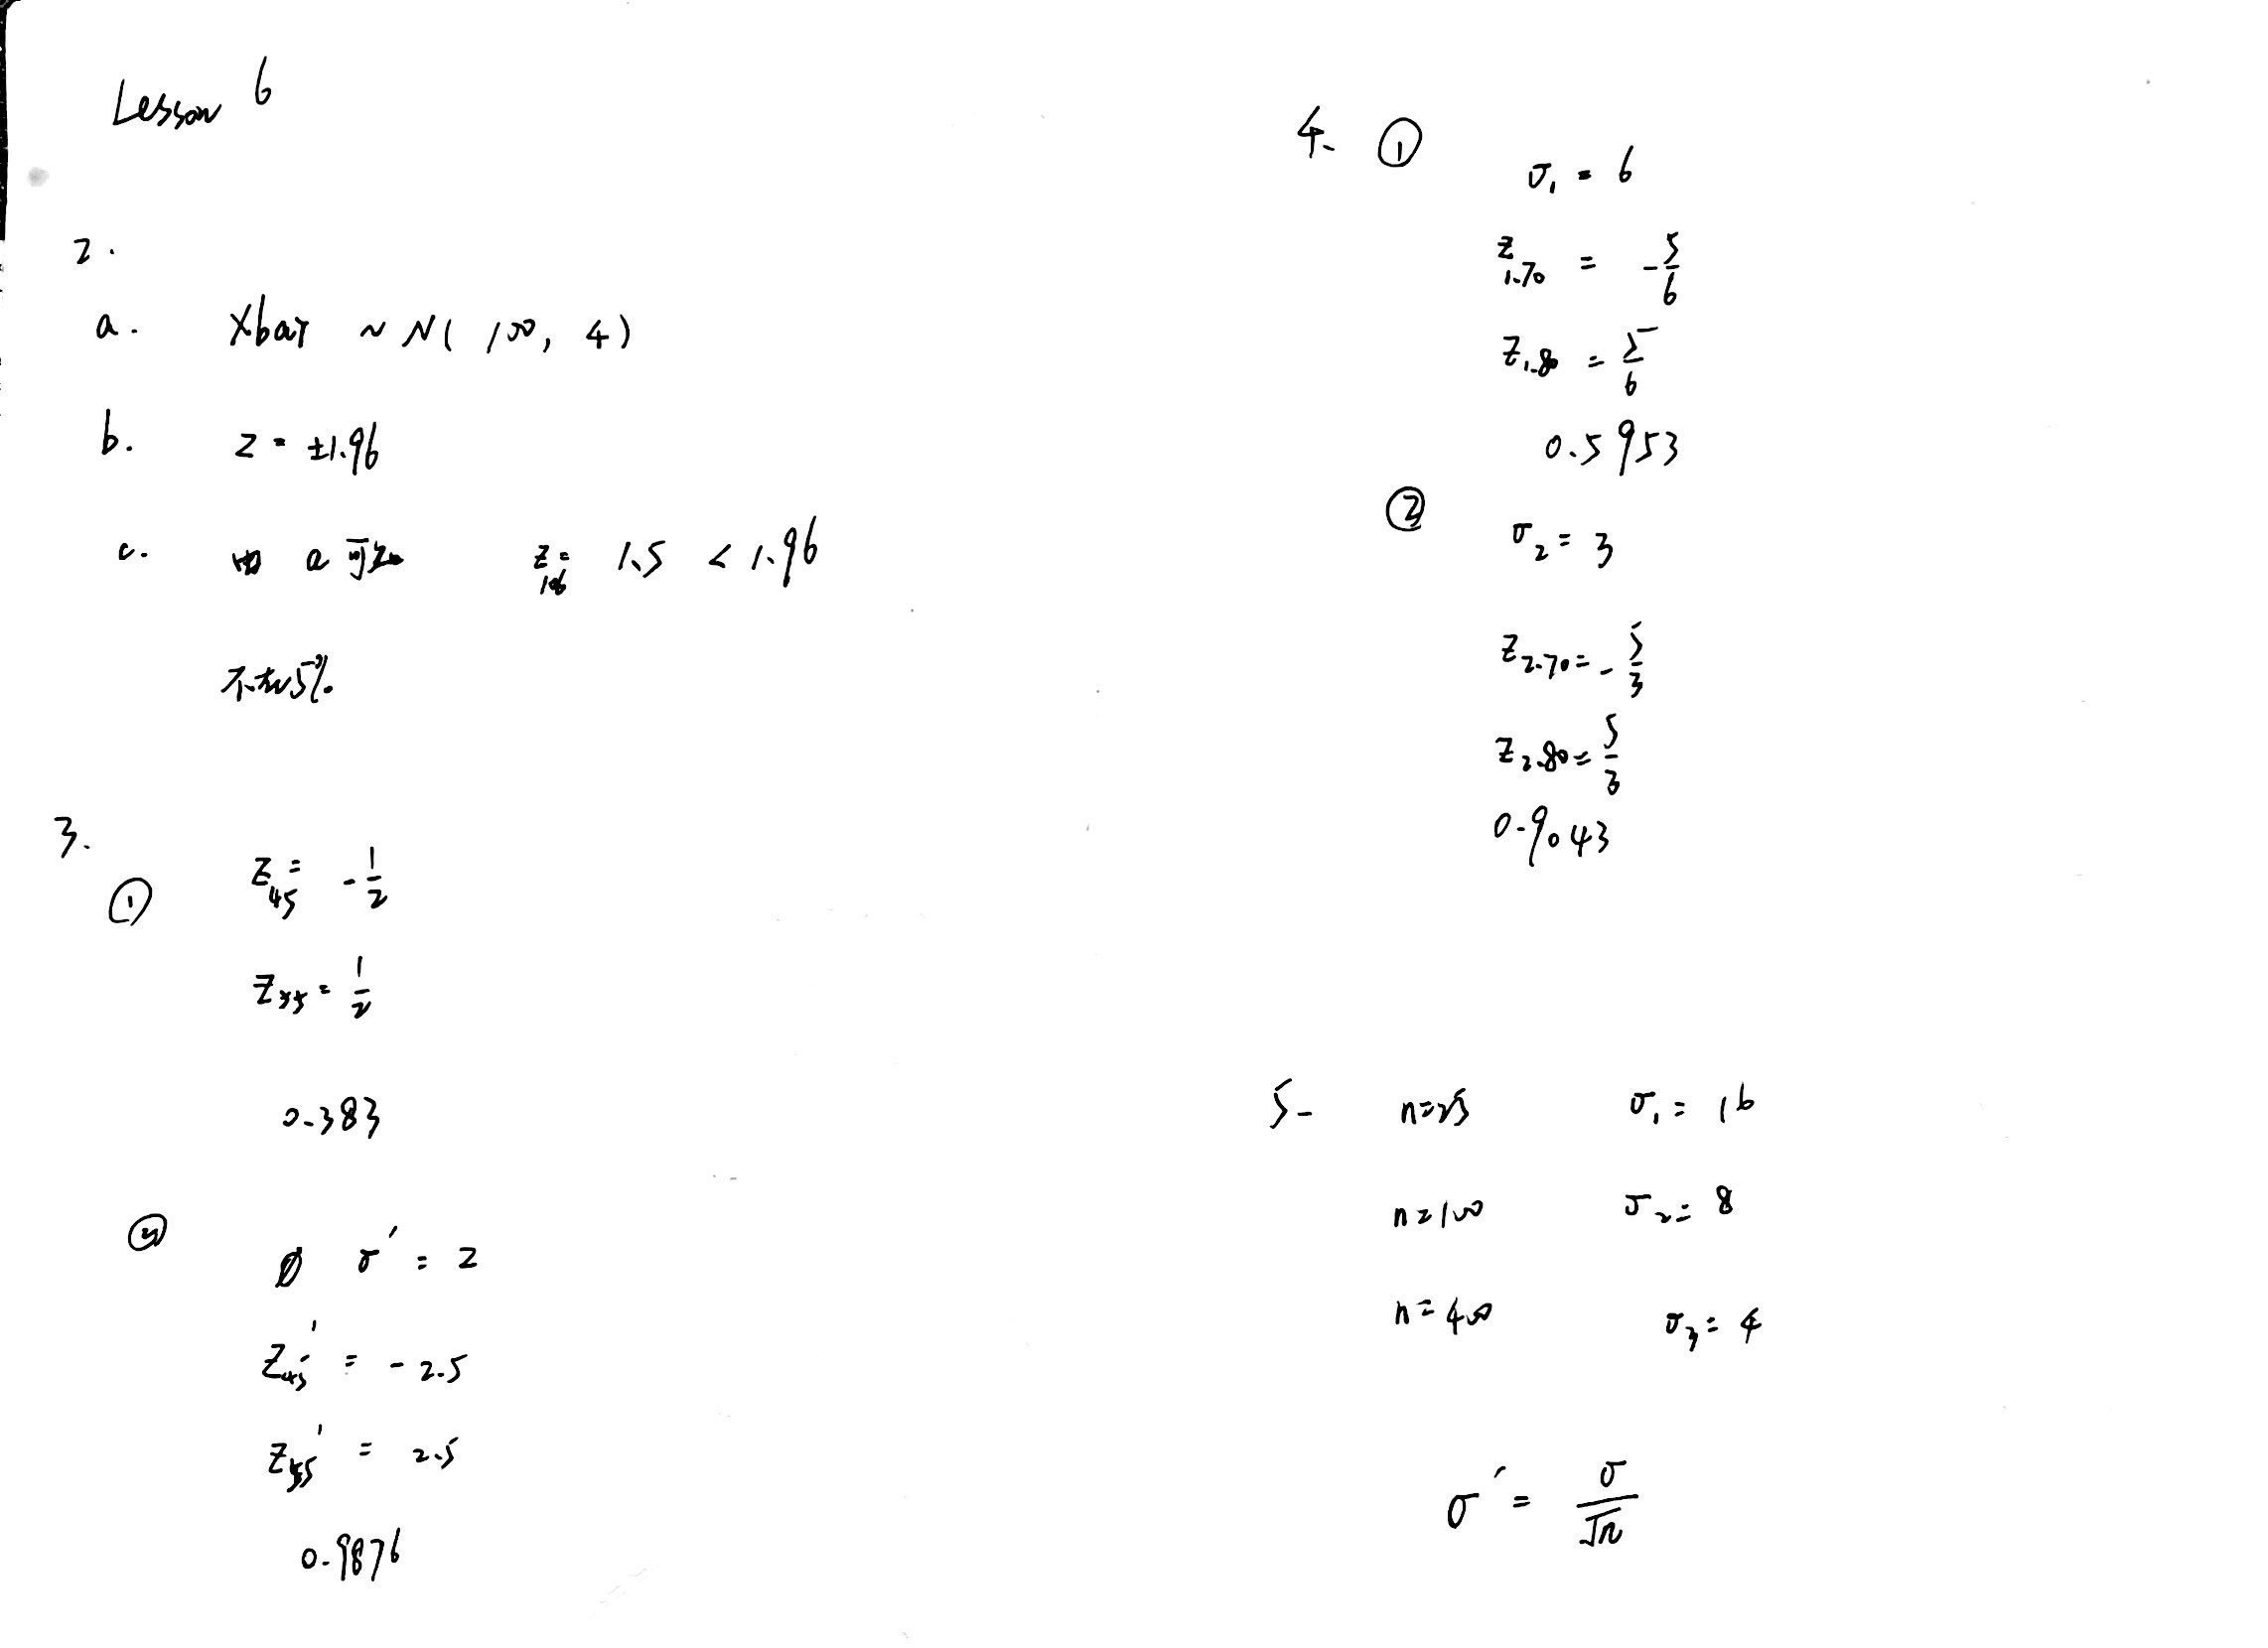 Lesson 6
2.
a. Xbar ~ N( 100, 4)
b. z = ±1.96
c. 由 a 可知 z106 = 1.5 < 1.96
不在5%
3.
① z45 = -1/2
z55 = 1/2
0.383
② σ' = 2
z45' = -2.5
z55' = 2.5
0.9876
4. ①
σ1 = 6
z1.70 = -5/6
z1.80 = 5/6
0.5953
②
σ2 = 3
z2.70 = -5/3
z2.80 = 5/3
0.9043
5. n=25 σ1 = 16
n=100 σ2 = 8
n=400 σ3 = 4
σ' = σ/√n